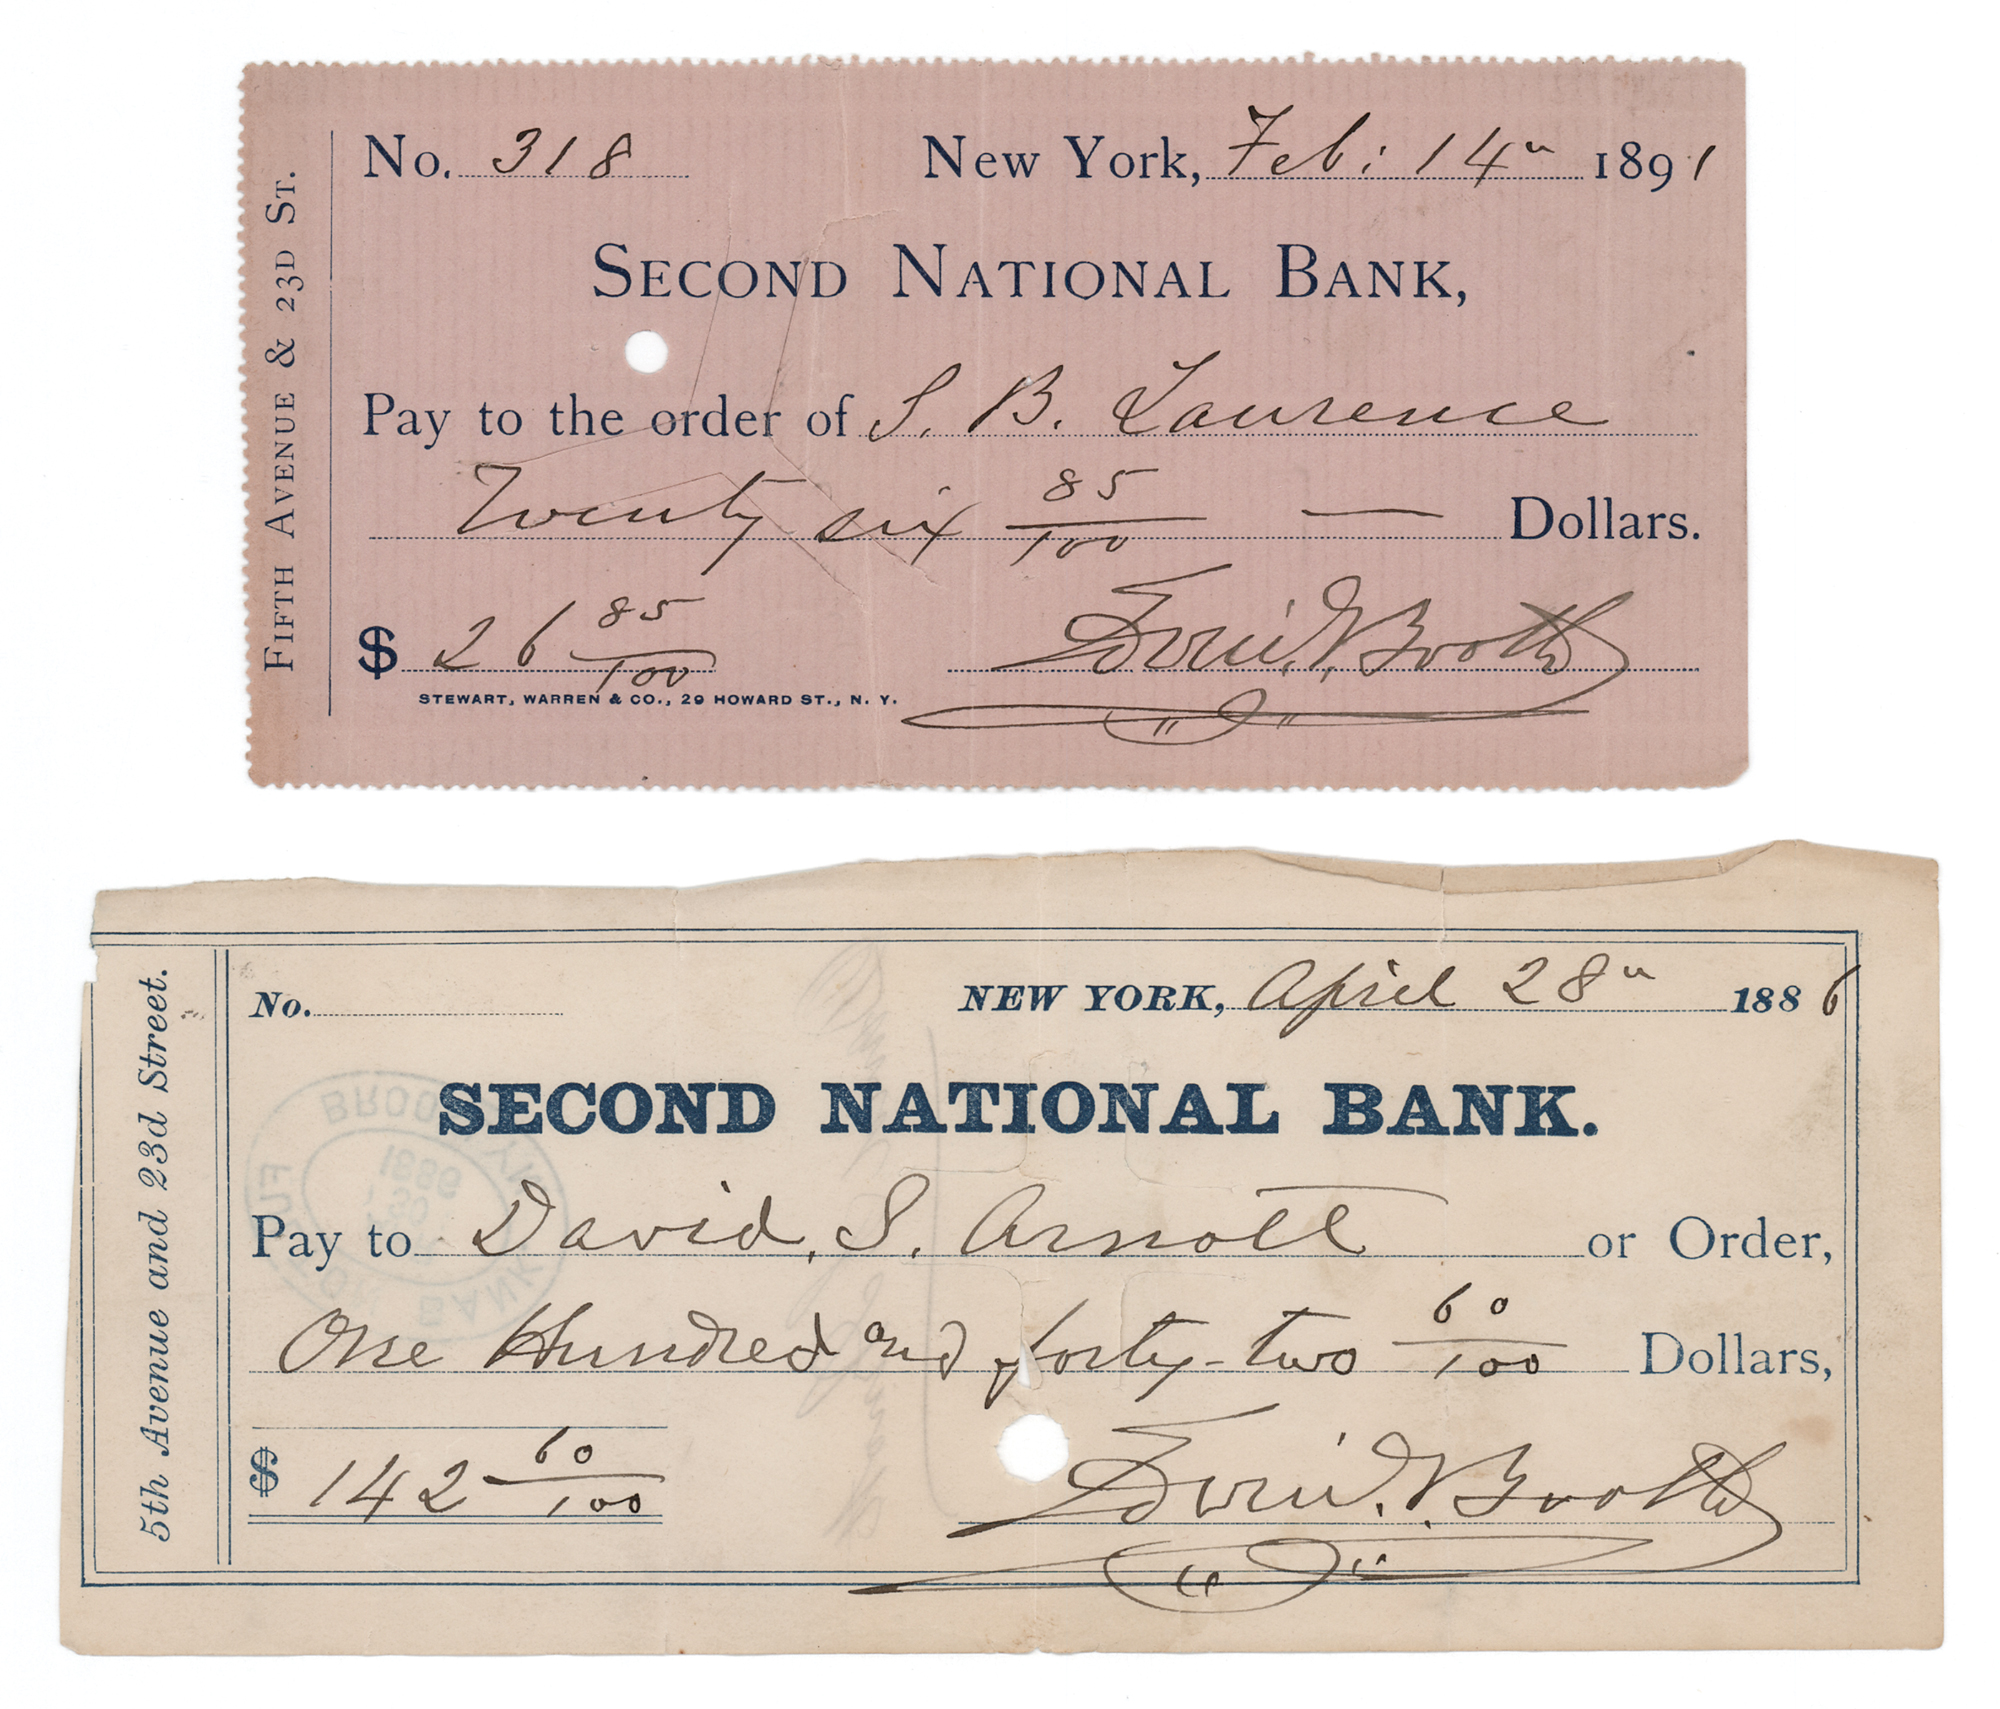 FIFTH AVENUE & 23D ST.
No. 318 New York, Feb: 14" 1891
SECOND NATIONAL BANK,
Pay to the order of S. B. Lawrence
Twenty six 85/100 — Dollars.
$ 26 85/100 Edwin Booth
STEWART, WARREN & CO., 29 HOWARD ST., N. Y.
5th Avenue and 23d Street.
No. NEW YORK, April 28" 1886
SECOND NATIONAL BANK.
Pay to David. S. Arnott or Order,
One Hundred and forty-two 60/100 Dollars,
$ 142 60/100 Edwin Booth
BROOKLYN
1886
BANK